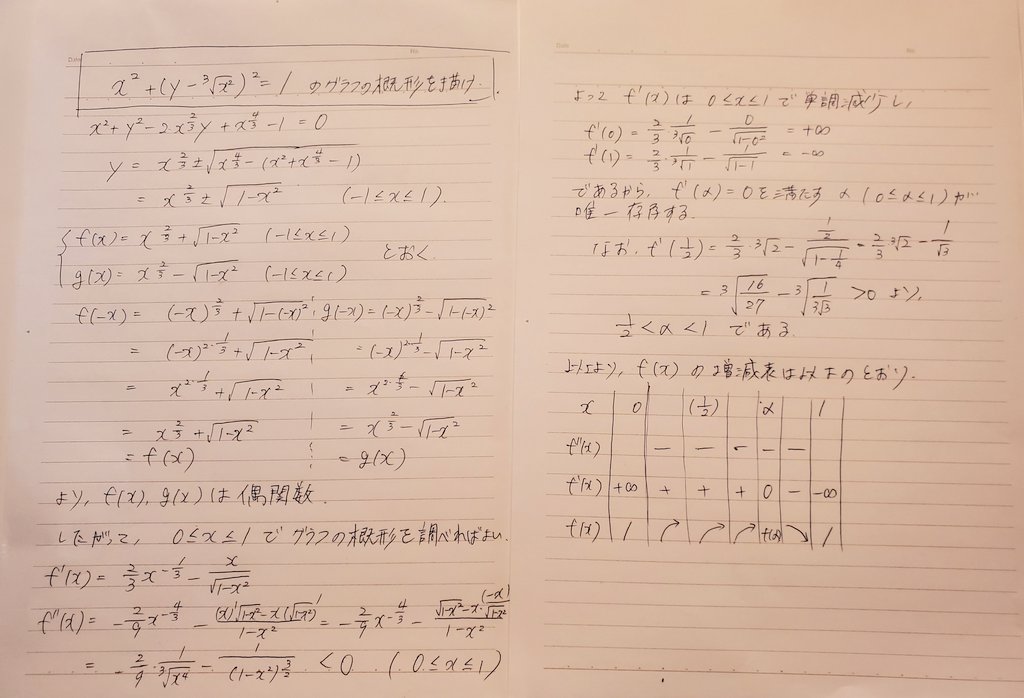 x² + (y - ³√x²)² = 1 のグラフの概形を描け.
x² + y² - 2·x^(2/3)y + x^(4/3) - 1 = 0
y = x^(2/3) ± √(x^(4/3) - (x² + x^(4/3) - 1))
= x^(2/3) ± √(1-x²) (-1≤x≤1).
{ f(x) = x^(2/3) + √(1-x²) (-1≤x≤1)
g(x) = x^(2/3) - √(1-x²) (-1≤x≤1) とおく.
f(-x) = (-x)^(2/3) + √(1-(-x)²) g(-x) = (-x)^(2/3) - √(1-(-x)²)
= (-x)^(2·1/3) + √(1-x²) = (-x)^(2·1/3) - √(1-x²)
= x^(2·1/3) + √(1-x²) = x^(2·1/3) - √(1-x²)
= x^(2/3) + √(1-x²) = x^(2/3) - √(1-x²)
= f(x) = g(x)
より, f(x), g(x) は偶関数.
したがって, 0≤x≤1 でグラフの概形を調べればよい.
f'(x) = 2/3 x^(-1/3) - x/√(1-x²)
f''(x) = -2/9 x^(-4/3) - ((x)'√(1-x²) - x(√(1-x²))')/(1-x²) = -2/9 x^(-4/3) - (√(1-x²) - x·(-x)/√(1-x²))/(1-x²)
= -2/9 · 1/³√x⁴ - 1/(1-x²)^(3/2) < 0 (0≤x≤1)
よって f'(x) は 0≤x≤1 で単調減少し,
f'(0) = 2/3 · 1/³√0 - 0/√(1-0²) = +∞
f'(1) = 2/3 · 1/³√1 - 1/√(1-1) = -∞
であるから, f'(α) = 0 を満たす α (0≤α≤1) が
唯一存在する.
なお, f'(1/2) = 2/3 · ³√2 - (1/2)/√(1-1/4) = 2/3 ³√2 - 1/√3
= ³√(16/27) - ³√(1/(3√3)) > 0 より,
1/2 < α < 1 である.
以上より, f(x) の増減表は以下のとおり.
x 0 (1/2) α 1
f''(x) - - - - -
f'(x) +∞ + + + 0 - -∞
f(x) 1 ↗ ↗ ↗ f(α) ↘ 1